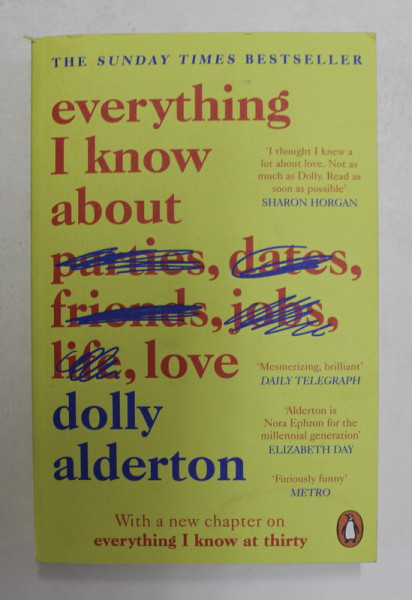 THE SUNDAY TIMES BESTSELLER
everything
I know
about
parties, dates,
friends, jobs,
life, love
dolly
alderton
'I thought I knew a
lot about love. Not as
much as Dolly. Read as
soon as possible'
SHARON HORGAN
'Mesmerizing, brilliant'
DAILY TELEGRAPH
'Alderton is
Nora Ephron for the
millennial generation'
ELIZABETH DAY
'Furiously funny'
METRO
With a new chapter on
everything I know at thirty